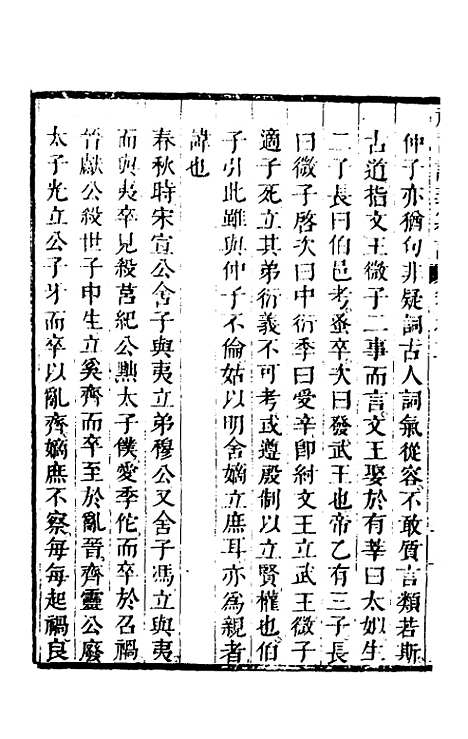 仲子亦猶句非疑詞古人詞氣從容不敢質言類若斯
古道指文王微子二事而言文王娶於有莘曰太姒生
二子長曰伯邑考蚤卒次曰發武王也帝乙有三子長
曰微子啓次曰中衍季曰爰辛卽紂文王立武王微子
適子死立其弟衍義不可考或遵殷制以立賢權也伯
子引此雖與仲子不倫姑以明舍嫡立庶耳亦為親者
諱也
春秋時宋宣公舍子與夷立弟穆公又舍子馮立與夷
而與夷卒見殺莒紀公黜太子僕愛季佗而卒於召禍
晉獻公殺世子申生立奚齊而卒至於亂晉齊靈公廢
太子光立公子牙而卒以亂齊嫡庶不察每每起禍良